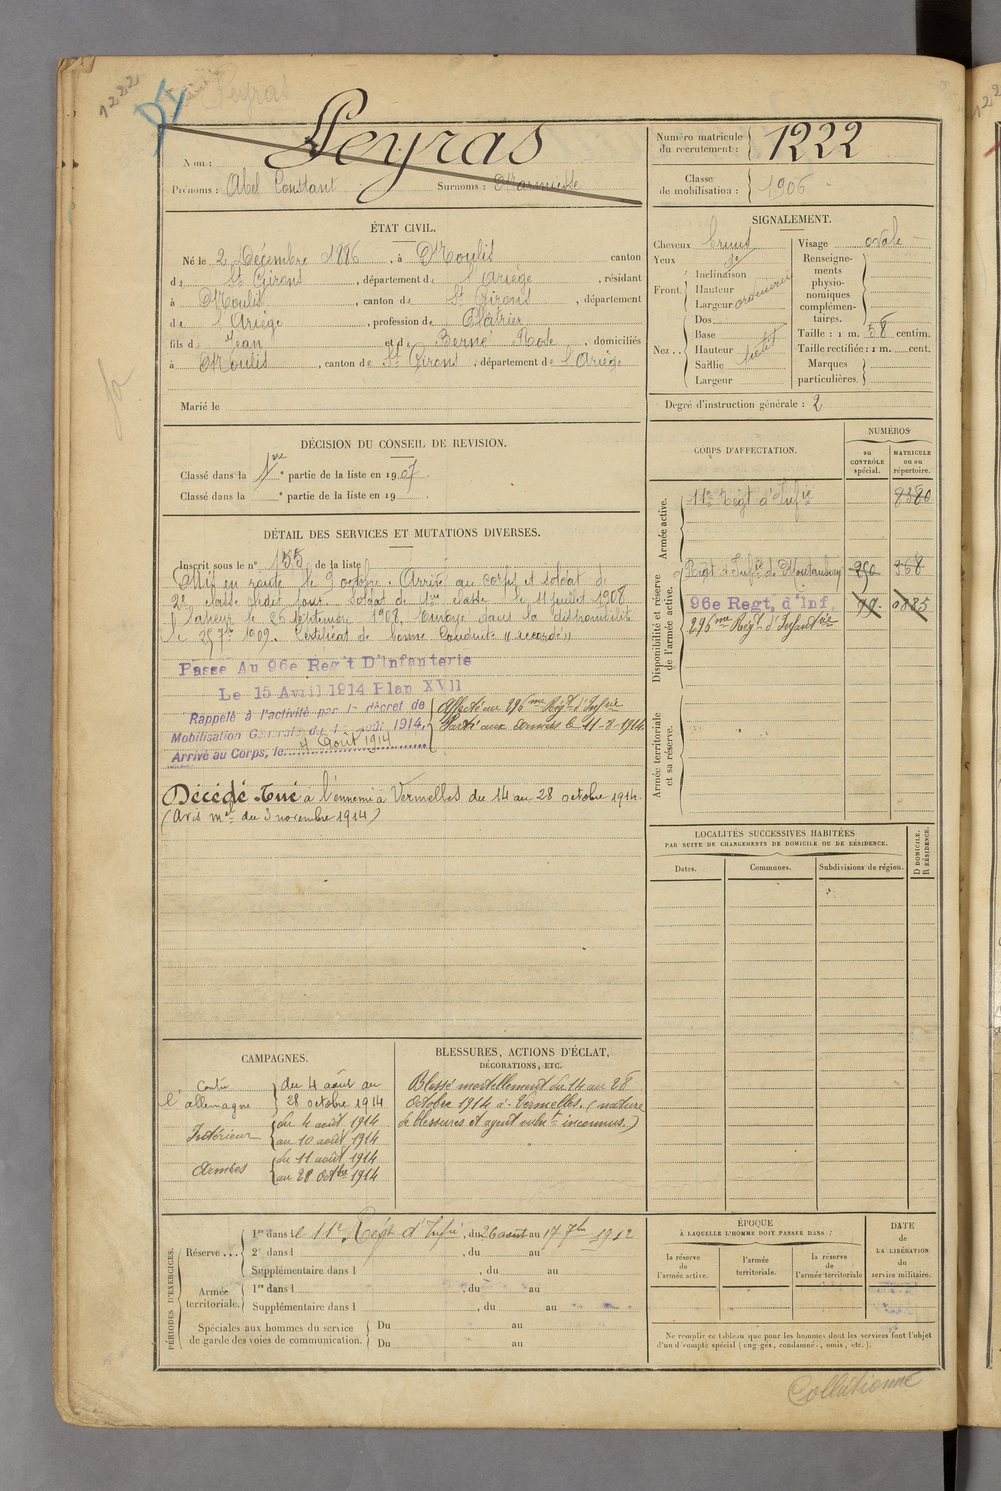 1222
Peyras
Nom : Peyras
Prénoms : Abel Constant Surnoms :
Numéro matricule du recrutement : 1222
Classe de mobilisation : 1906
ÉTAT CIVIL.
Né le 2 Décembre 1886, à Moulis canton
de St Girons, département de l'Ariège, résidant
à Moulis, canton de St Girons, département
de l'Ariège, profession de Plâtrier
fils de Jean et de Berné Rose, domiciliés
à Moulis, canton de St Girons, département de l'Ariège
Marié le
SIGNALEMENT.
Cheveux bruns
Yeux do
Front. Inclinaison
Hauteur
Largeur ordinaire
Nez.. Dos
Base
Hauteur petit
Saillie
Largeur
Visage ovale
Renseigne-
ments
physio-
nomiques
complémen-
taires.
Taille : 1 m. 58 centim.
Taille rectifiée : 1 m. cent.
Marques
particulières.
Degré d'instruction générale : 2
DÉCISION DU CONSEIL DE REVISION.
Classé dans la 1ère partie de la liste en 1907.
Classé dans la e partie de la liste en 19
DÉTAIL DES SERVICES ET MUTATIONS DIVERSES.
Inscrit sous le n° 155 de la liste
Mis en route le 9 octobre. Arrivé au corps et soldat de
2e classe ledit jour. Soldat de 1ère classe le 11 juillet 1908
le 25 septembre 1908. Envoyé dans la disponibilité
le 25 7bre 1909. Certificat de bonne Conduite "accordé"
Passe Au 96e Reg't D'Infanterie
Le 15 Avril 1914 Plan XVII
Rappelé à l'activité par le décret de
Mobilisation Générale du 1er août 1914.
Arrivé au Corps, le 4 Août 1914
Affecté au 296me Régt d'Infrie
Parti aux armées le 11-8-1914.
Décédé. Tué à l'ennemi à Vermelles du 14 au 28 octobre 1914.
(Avis mel du 3 novembre 1914)
CORPS D'AFFECTATION.
NUMÉROS
au CONTRÔLE spécial.
MATRICULE ou au répertoire.
Armée active.
11e Régt d'Infie 8380
Disponibilité et réserve de l'armée active.
Régt d'Infie de Montauban 250 368
96e Regt. d'Inf. 99. 0885
296me Régt d'Infanterie
Armée territoriale et sa réserve.
LOCALITÉS SUCCESSIVES HABITÉES
PAR SUITE DE CHANGEMENTS DE DOMICILE OU DE RÉSIDENCE.
Dates. Communes. Subdivisions de région. D DOMICILE. R RÉSIDENCE.
CAMPAGNES.
Contre l'allemagne du 4 août au 28 octobre 1914
Intérieur du 4 août 1914 au 10 août 1914
Armées du 11 août 1914 au 28 octbre 1914
BLESSURES, ACTIONS D'ÉCLAT,
DÉCORATIONS, ETC.
Blessé mortellement du 14 au 28
octobre 1914 à Vermelles. (nature
de blessures et agent vulnt inconnus.)
PÉRIODES D'EXERCICES.
Réserve ... 1re dans le 11e Régt d'Infie, du 26 août au 17 7bre 1912
2e dans l , du au
Supplémentaire dans l , du au
Armée territoriale. 1re dans l , du au
Supplémentaire dans l , du au
Spéciales aux hommes du service
de garde des voies de communication.
Du au
Du au
ÉPOQUE
À LAQUELLE L'HOMME DOIT PASSER DANS :
la réserve de l'armée active.
l'armée territoriale.
la réserve de l'armée territoriale
DATE de LA LIBÉRATION du service militaire.
Ne remplir ce tableau que pour les hommes dont les services font l'objet
d'un d'compte spécial (engagés, condamnés, omis, etc.).
Collationné